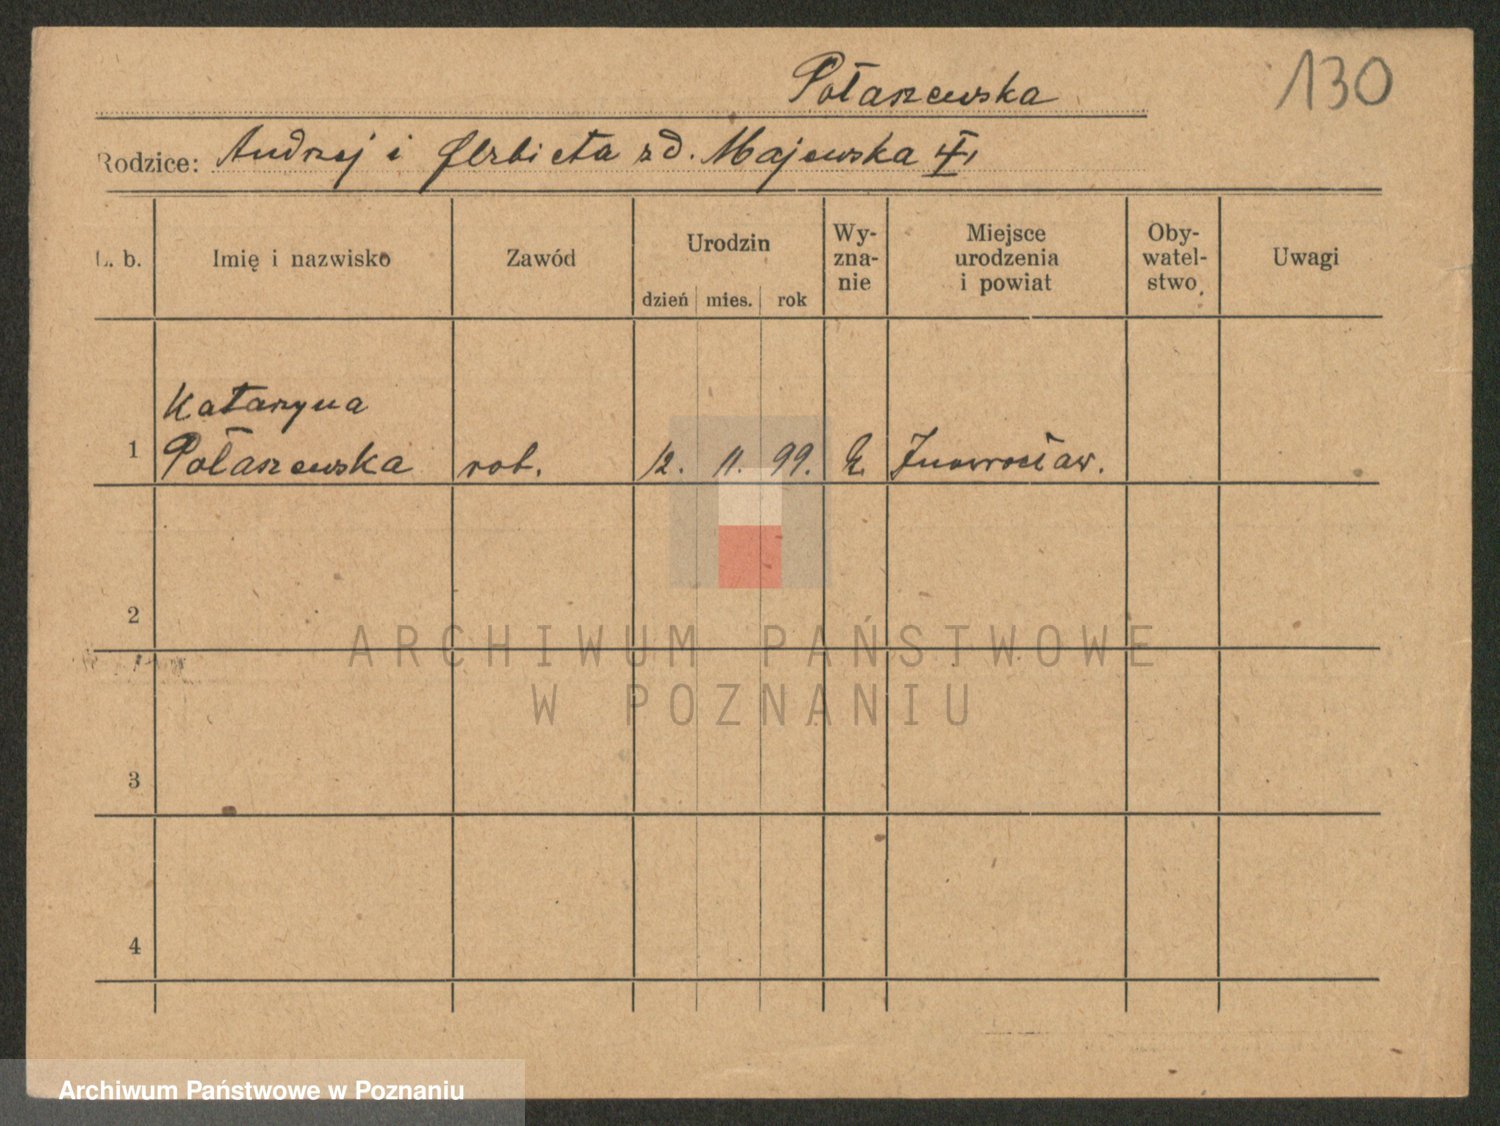 Połaszewska
130
Rodzice: Andrzej i Elżbieta zd. Majewska
L. b. Imię i nazwisko Zawód Urodzin dzień mies. rok Wy-zna-nie Miejsce urodzenia i powiat Oby-watel-stwo Uwagi
Katarzyna
1 Połaszewska rob. 12. 11. 99. Inowrocław.
2
ARCHIWUM PAŃSTWOWE
W POZNANIU
3
4
Archiwum Państwowe w Poznaniu